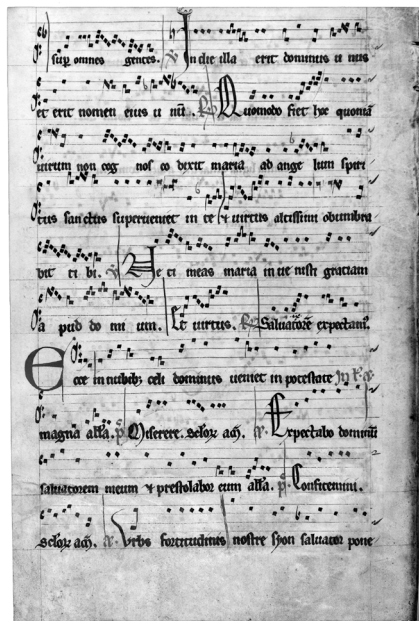 sup omnes gentes. ℣ In die illa erit dominus u nus
et erit nomen eius u nū. ℟ Quomodo fiet hoc quoniā
uirum non cog nos co dixit maria ad ange lum spiri
tus sanctus superueniet in te ⁊ uirtus altissimi obumbra
bit ti bi. ℣ Ne ti meas maria in ue nisti gratiam
a pud do mi num. Et uirtus. ℟ Saluatorē expectam⁹.
Ecce in nubibꝫ celi dominus ueniet in potestate
magna all'a. p̄s Miserere. A. Expectabo dominū
saluatorem meum ⁊ prestolabor eum all'a. p̄s Confitemini.
A. Vrbs fortitudinis nostre syon saluator pone